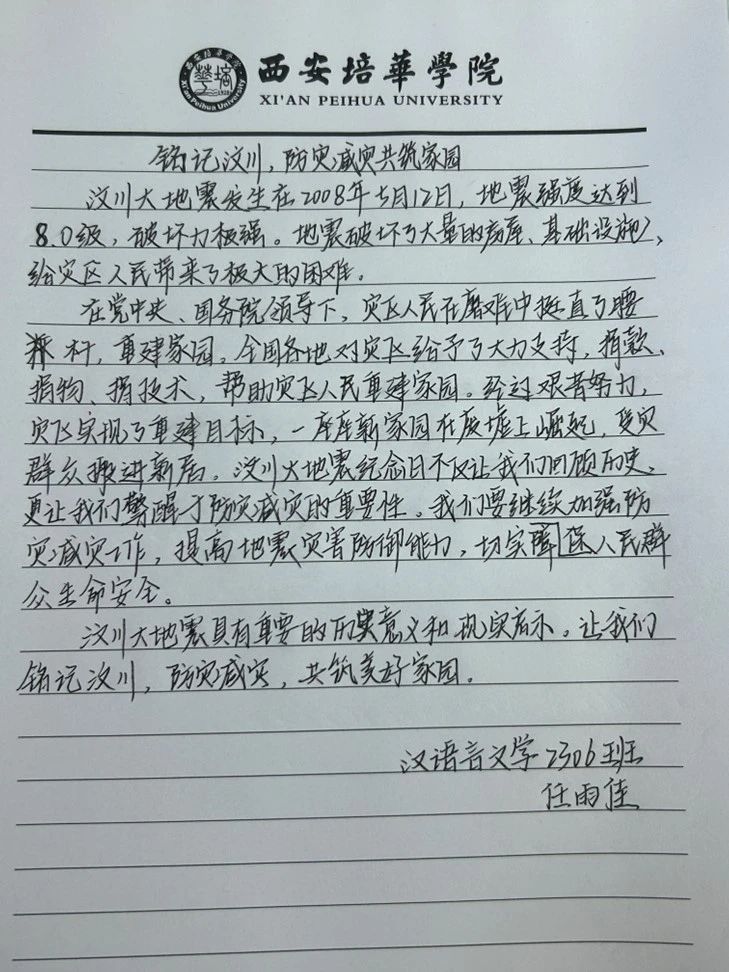 西安培華學院
XI'AN PEIHUA UNIVERSITY
铭记汶川,防灾减灾共筑家园
汶川大地震发生在2008年5月12日,地震强度达到
8.0级,破坏力极强。地震破坏了大量的房屋、基础设施,
给灾区人民带来了极大的困难。
在党中央、国务院领导下,灾区人民在磨难中挺直了腰
杆,重建家园。全国各地对灾区给予了大力支持,捐款、
捐物、捐技术,帮助灾区人民重建家园。经过艰苦努力,
灾区实现了重建目标,一座座新家园在废墟上崛起,受灾
群众搬进新居。汶川大地震纪念日不仅让我们回顾历史,
更让我们警醒于防灾减灾的重要性。我们要继续加强防
灾减灾工作,提高地震灾害防御能力,切实障保人民群
众生命安全。
汶川大地震具有重要的历史意义和现实启示。让我们
铭记汶川,防灾减灾,共筑美好家园。
汉语言文学2306班
任雨佳